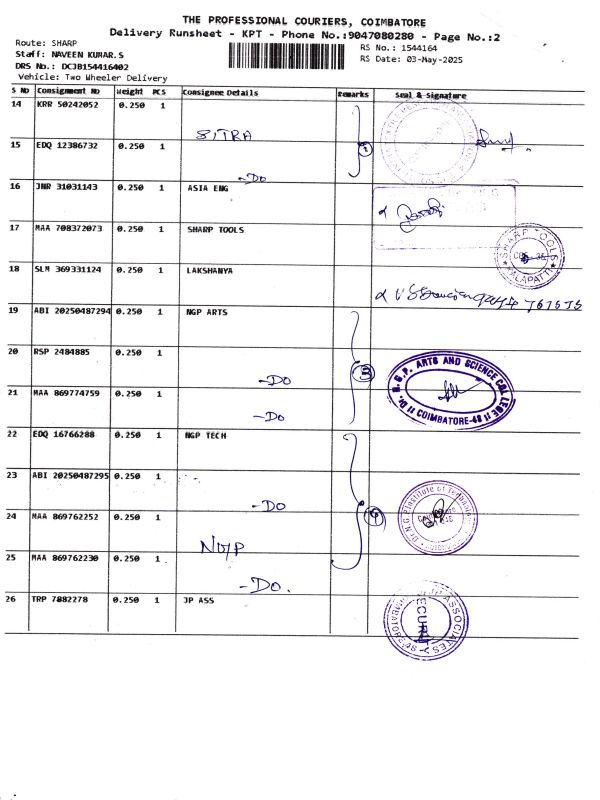 THE PROFESSIONAL COURIERS, COIMBATORE
Delivery Runsheet - KPT - Phone No.:9047080280 - Page No.:2
Route: SHARP
RS No.: 1544164
Staff: NAVEEN KUMAR.S
RS Date: 03-May-2025
DRS No.: DCJB154416402
Vehicle: Two Wheeler Delivery
S No Consignment No Weight PCS Consignee Details Remarks Seal & Signature
14 KRR 50242052 0.250 1
SITRA
15 EDQ 12386732 0.250 1
-DO
16 JNR 31031143 0.250 1 ASIA ENG
17 MAA 708372073 0.250 1 SHARP TOOLS
SHARP TOOLS
KALAPATTI
18 SLM 369331124 0.250 1 LAKSHANYA
19 ABI 20250487294 0.250 1 NGP ARTS
20 RSP 2484885 0.250 1
-DO
Dr. N.G.P. ARTS AND SCIENCE COLLEGE
COIMBATORE-48
21 MAA 869774759 0.250 1
-DO
22 EDQ 16766288 0.250 1 NGP TECH
23 ABI 20250487295 0.250 1
-DO
24 MAA 869762252 0.250 1
25 MAA 869762230 0.250 1
-DO.
26 TRP 7882278 0.250 1 JP ASS
ASSOCIATES
SECURITY